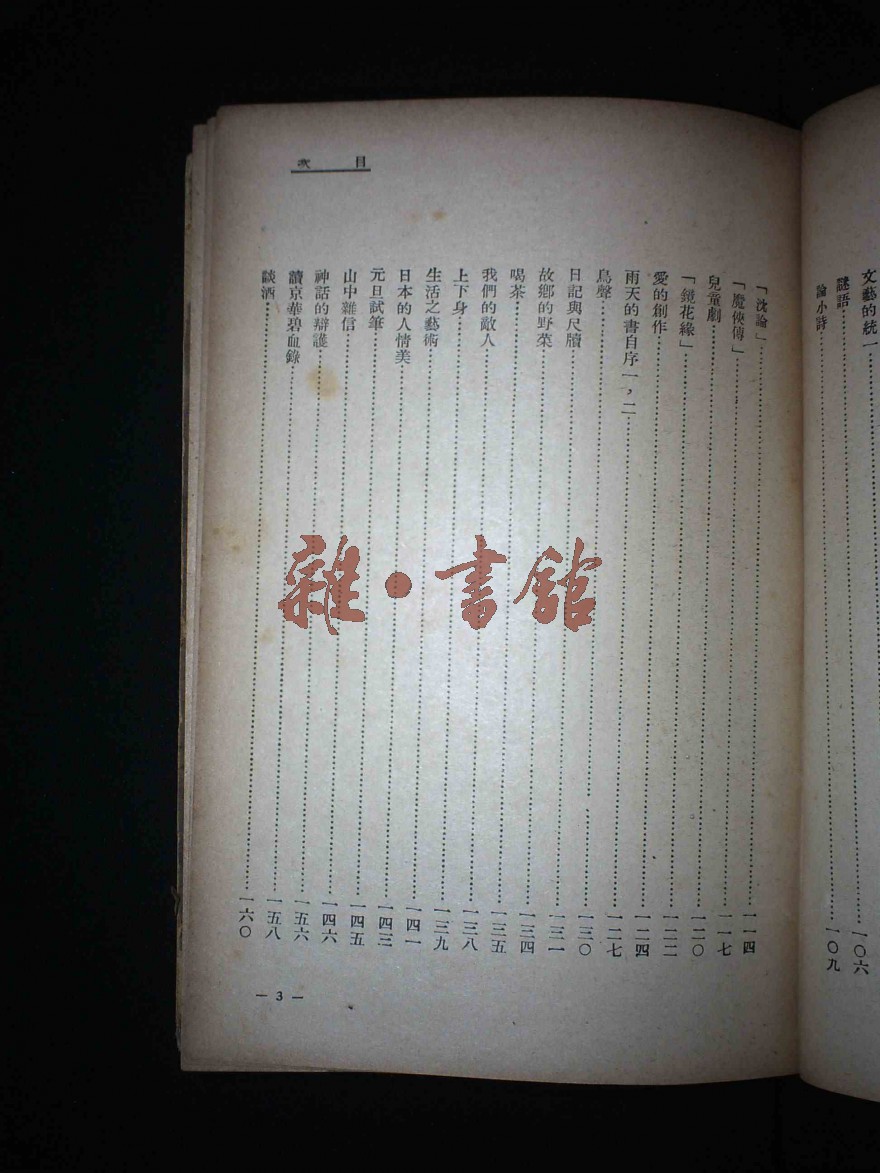 文藝的統一
謎語……一〇六
論小詩……一〇九
目次
「沈論」……一一四
「魔俠傳」……一一七
兒童劇……一二〇
「鏡花緣」……一二二
愛的創作……一二四
雨天的書自序一，二……一二七
鳥聲……一三〇
日記與尺牘……一三一
故鄉的野菜……一三四
喝茶……一三五
我們的敵人……一三八
上下身……一三九
生活之藝術……一四一
日本的人情美……一四三
元旦試筆……一四五
山中雜信……一四六
神話的辯護……一五六
讀京華碧血錄……一五八
談酒……一六〇
— 3 —
雜·書館